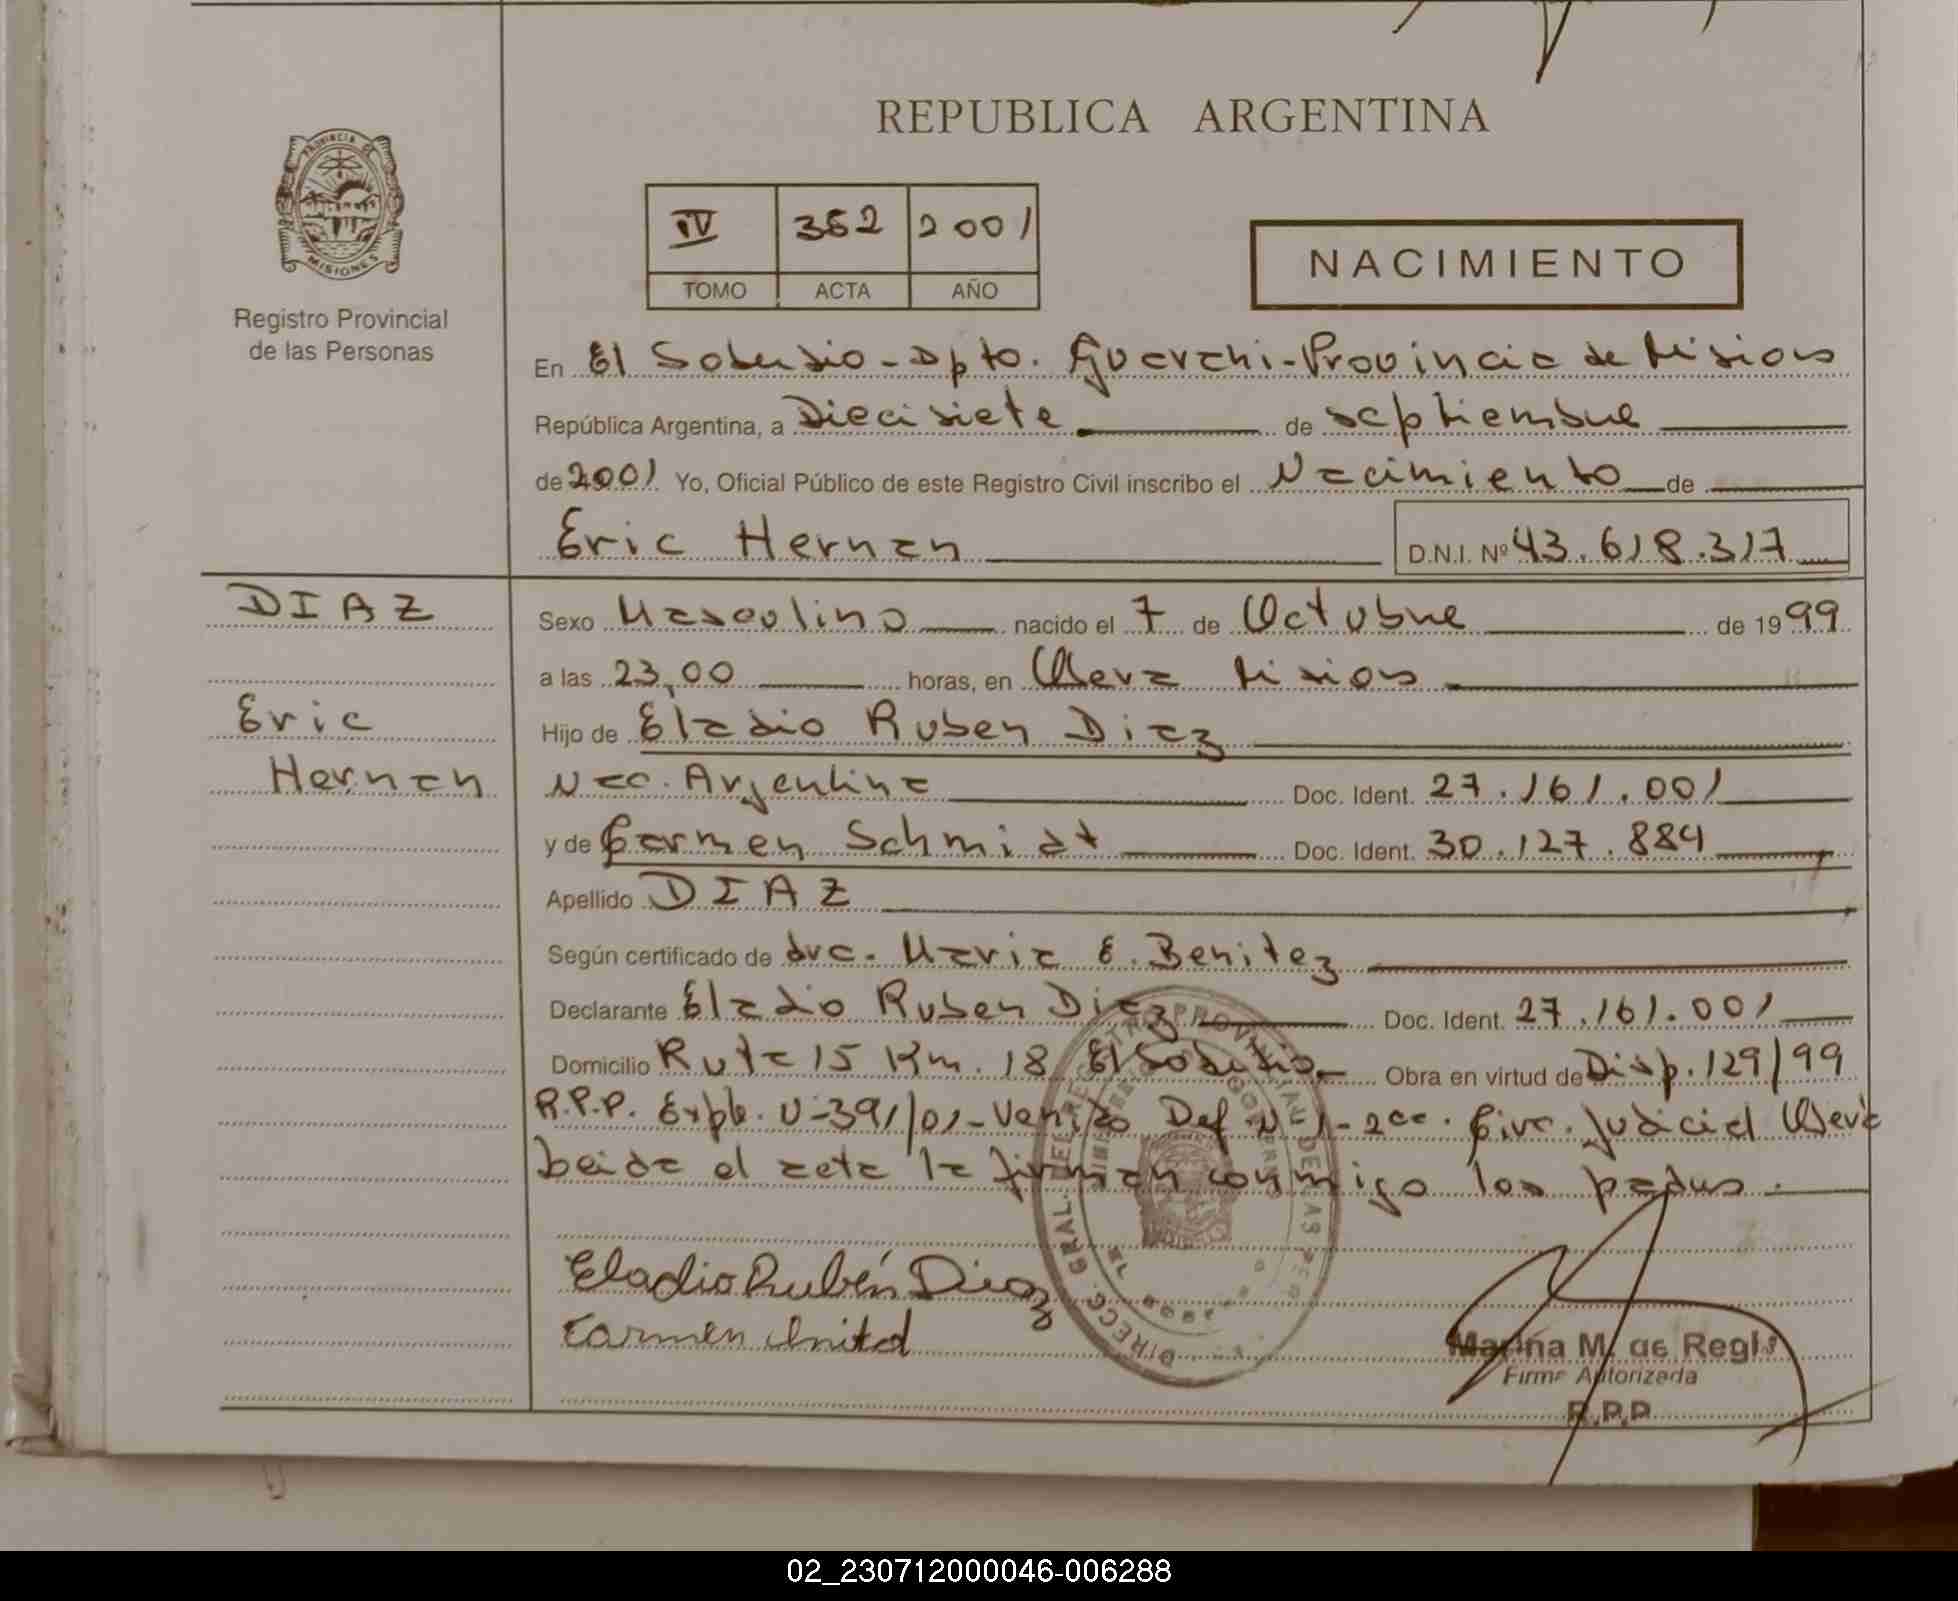 REPUBLICA ARGENTINA
PROVINCIA DE MISIONES
Registro Provincial
de las Personas
IV 362 2001
TOMO ACTA AÑO
NACIMIENTO
En El Soberbio - Dpto. Guarani - Provincia de Misiones
República Argentina, a Diecisiete de septiembre
de 2001 Yo, Oficial Público de este Registro Civil inscribo el Nacimiento de
Eric Hernan D.N.I. Nº 43.618.317
DIAZ
Eric
Hernan
Sexo Masculino nacido el 7 de Octubre de 1999
a las 23,00 horas, en Obera Misiones
Hijo de Eladio Ruben Diaz
Nac. Argentina Doc. Ident. 27.161.001
y de Carmen Schmidt Doc. Ident. 30.127.884
Apellido DIAZ
Según certificado de dra. Maria E. Benitez
Declarante Eladio Ruben Diaz Doc. Ident. 27.161.001
Domicilio Ruta 15 Km. 18 El Soberbio Obra en virtud de Disp. 129/99
R.P.P. Expte. U-391/01- Def. Nº 1- 2da. Circ. Judicial Obera
Leida el acta la firman conmigo los padres.
Eladio Rubén Diaz
Carmen
Marina M. de Regis
Firma Autorizada
R.P.P
02_230712000046-006288